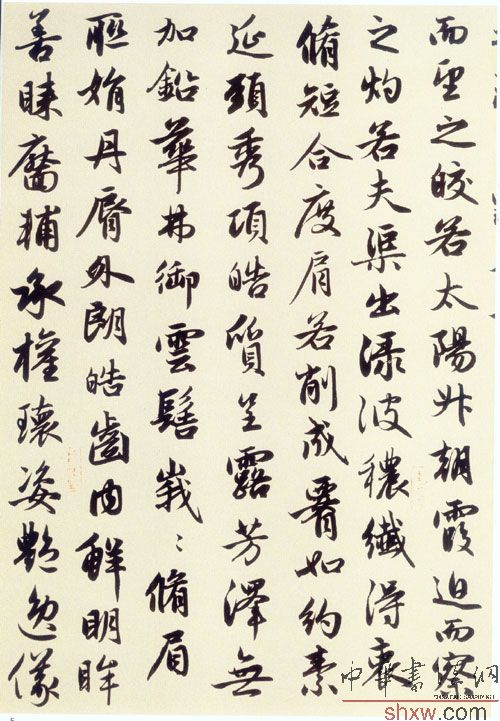 而望之皎若太陽升朝霞迫而察
之灼若夫渠出渌波穠纖得衷
脩短合度肩若削成腰如約素
延頸秀項皓質呈露芳澤無
加鉛華弗御雲髻峩〻脩眉
聯娟丹脣外朗皓齒内鮮明眸
善睞靨輔承權瓌姿豔逸儀
shxw.com